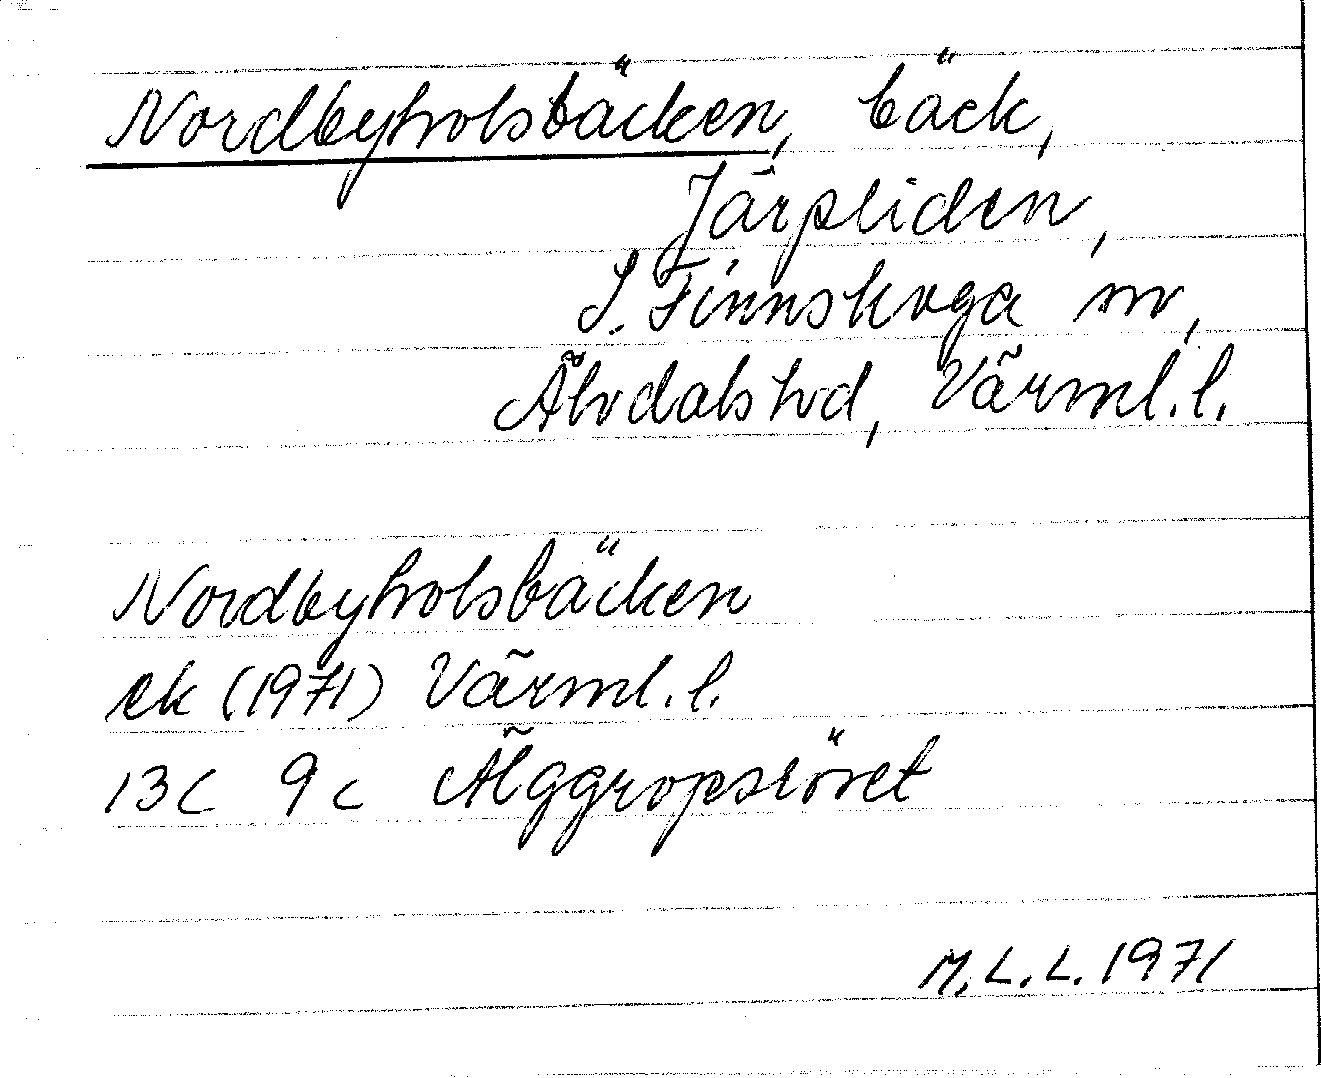 Nordbyholsbäcken, bäck,
Järpliden,
S. Finnskoga sn,
Älvdals hd, Värml. l.
Nordbyholsbäcken
ek (1971) Värml. l.
13C 9c Älggropsröret
M. L. L. 1971